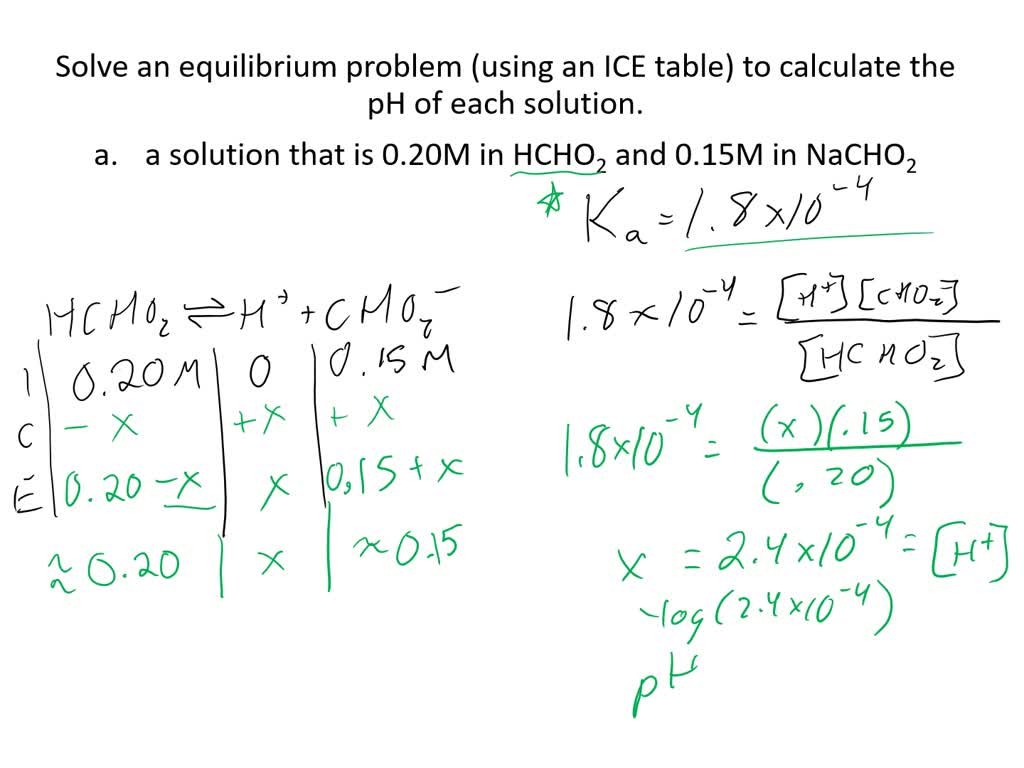 Solve an equilibrium problem (using an ICE table) to calculate the
pH of each solution.
a. a solution that is 0.20M in HCHO₂ and 0.15M in NaCHO₂
* Kₐ = 1.8 x 10⁻⁴
HCHO₂ ⇌ H⁺ + CHO₂⁻
I 0.20 M 0 0.15 M
C - x + x + x
E 0.20 - x x 0.15 + x
≈ 0.20 x ≈ 0.15
1.8 x 10⁻⁴ = [H⁺][CHO₂⁻]
[HCHO₂]
1.8 x 10⁻⁴ = (x)(.15)
(.20)
x = 2.4 x 10⁻⁴ = [H⁺]
-log(2.4 x 10⁻⁴)
pH